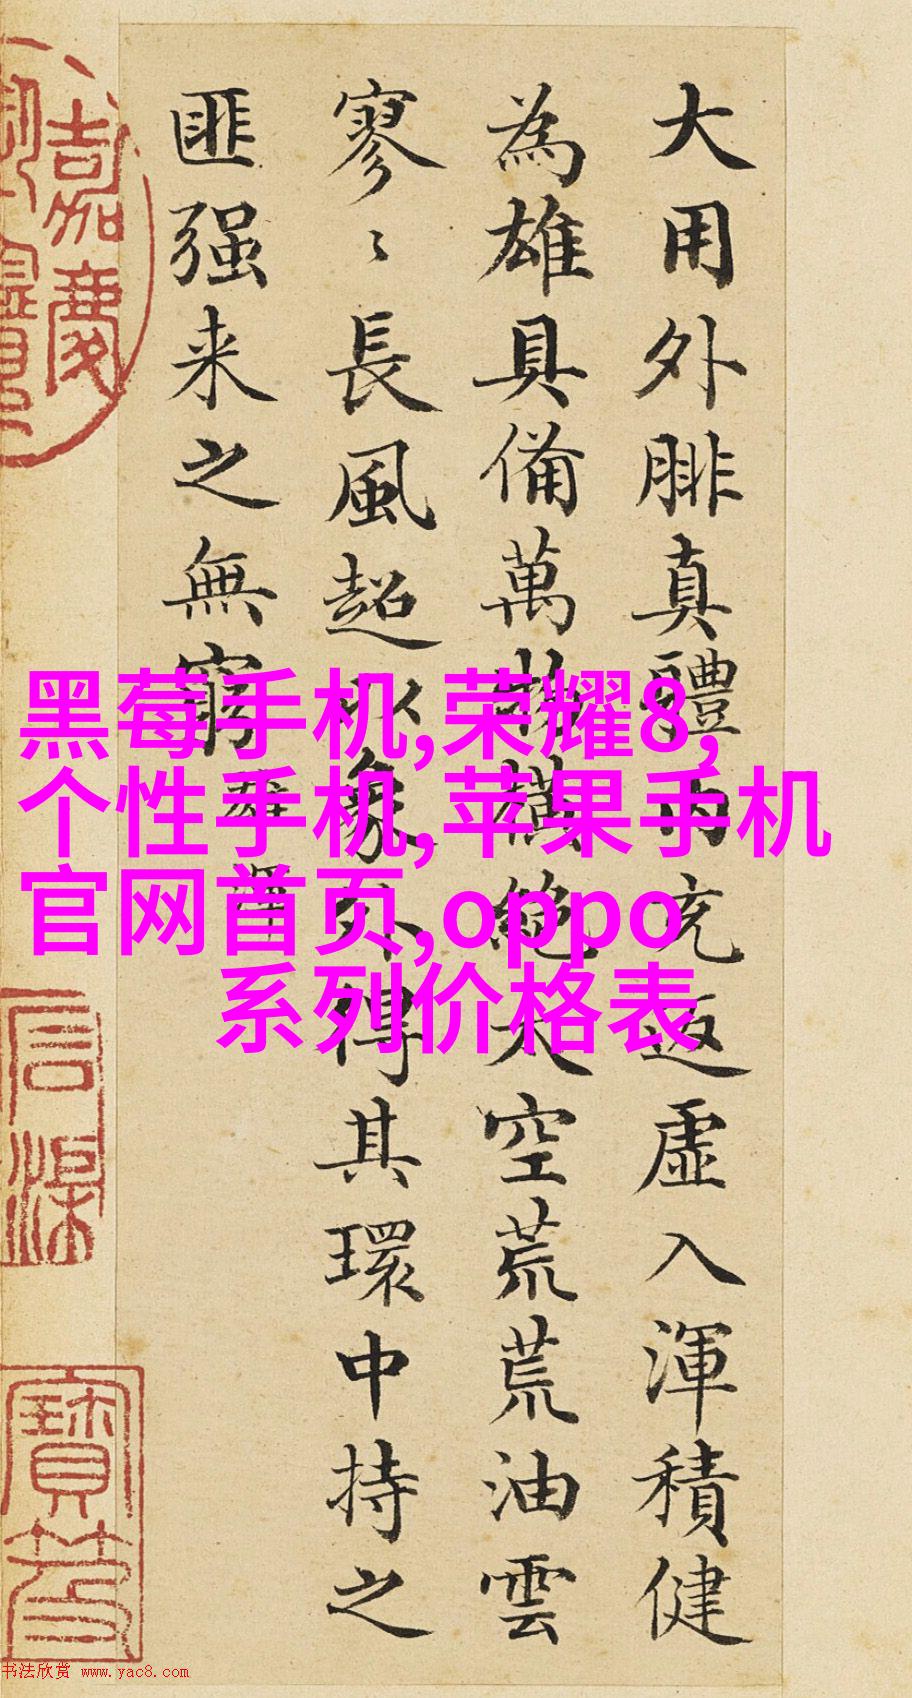 大用外腓真體内充返虛入渾積健
為雄具備萬物橫絕太空荒荒油雲
寥〻長風超以象外得其環中持之
匪强来之無窮
雄渾
黑莓手机,荣耀8,
个性手机,苹果手机
官网首页,oppo
系列价格表
嘉慶
书法欣赏 www.yac8.com